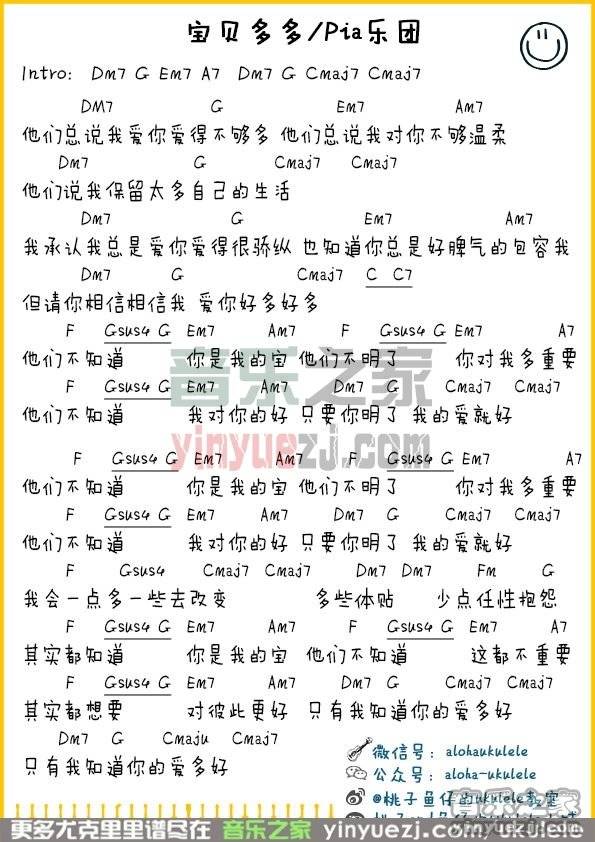 宝贝多多/Pia乐团
Intro: Dm7 G Em7 A7 Dm7 G Cmaj7 Cmaj7
DM7 G Em7 Am7
他们总说我爱你爱得不够多 他们总说我对你不够温柔
Dm7 G Cmaj7 Cmaj7
他们说我保留太多自己的生活
Dm7 G Em7 Am7
我承认我总是爱你爱得很骄纵 也知道你总是好脾气的包容我
Dm7 G Cmaj7 C C7
但请你相信相信我 爱你好多好多
F Gsus4 G Em7 Am7 F Gsus4 G Em7 A7
他们不知道 你是我的宝 他们不明了 你对我多重要
F Gsus4 G Em7 Am7 Dm7 G Cmaj7 Cmaj7
他们不知道 我对你的好 只要你明了 我的爱就好
音乐之家
yinyuezj.com
F Gsus4 G Em7 Am7 F Gsus4 G Em7 A7
他们不知道 你是我的宝 他们不明了 你对我多重要
F Gsus4 G Em7 Am7 Dm7 G Cmaj7 Cmaj7
他们不知道 我对你的好 只要你明了 我的爱就好
F Gsus4 Cmaj7 Cmaj7 Dm7 Dm7 Fm G
我会一点多一些去改变 多些体贴 少点任性抱怨
F Gsus4 G Em7 Am7 F Gsus4 G Em7 A7
其实都知道 你是我的宝 他们不知道 这都不重要
F Gsus4 G Em7 Am7 Dm7 G Cmaj7 Cmaj7
其实都想要 对彼此更好 只有我知道你的爱多好
Dm7 G Cmaju Cmaj7
只有我知道你的爱多好
微信号: alohaukulele
公众号: aloha-ukulele
@桃子鱼仔的ukulele教室
音乐之家
更多尤克里里谱尽在 音乐之家 yinyuezj.com ukulele